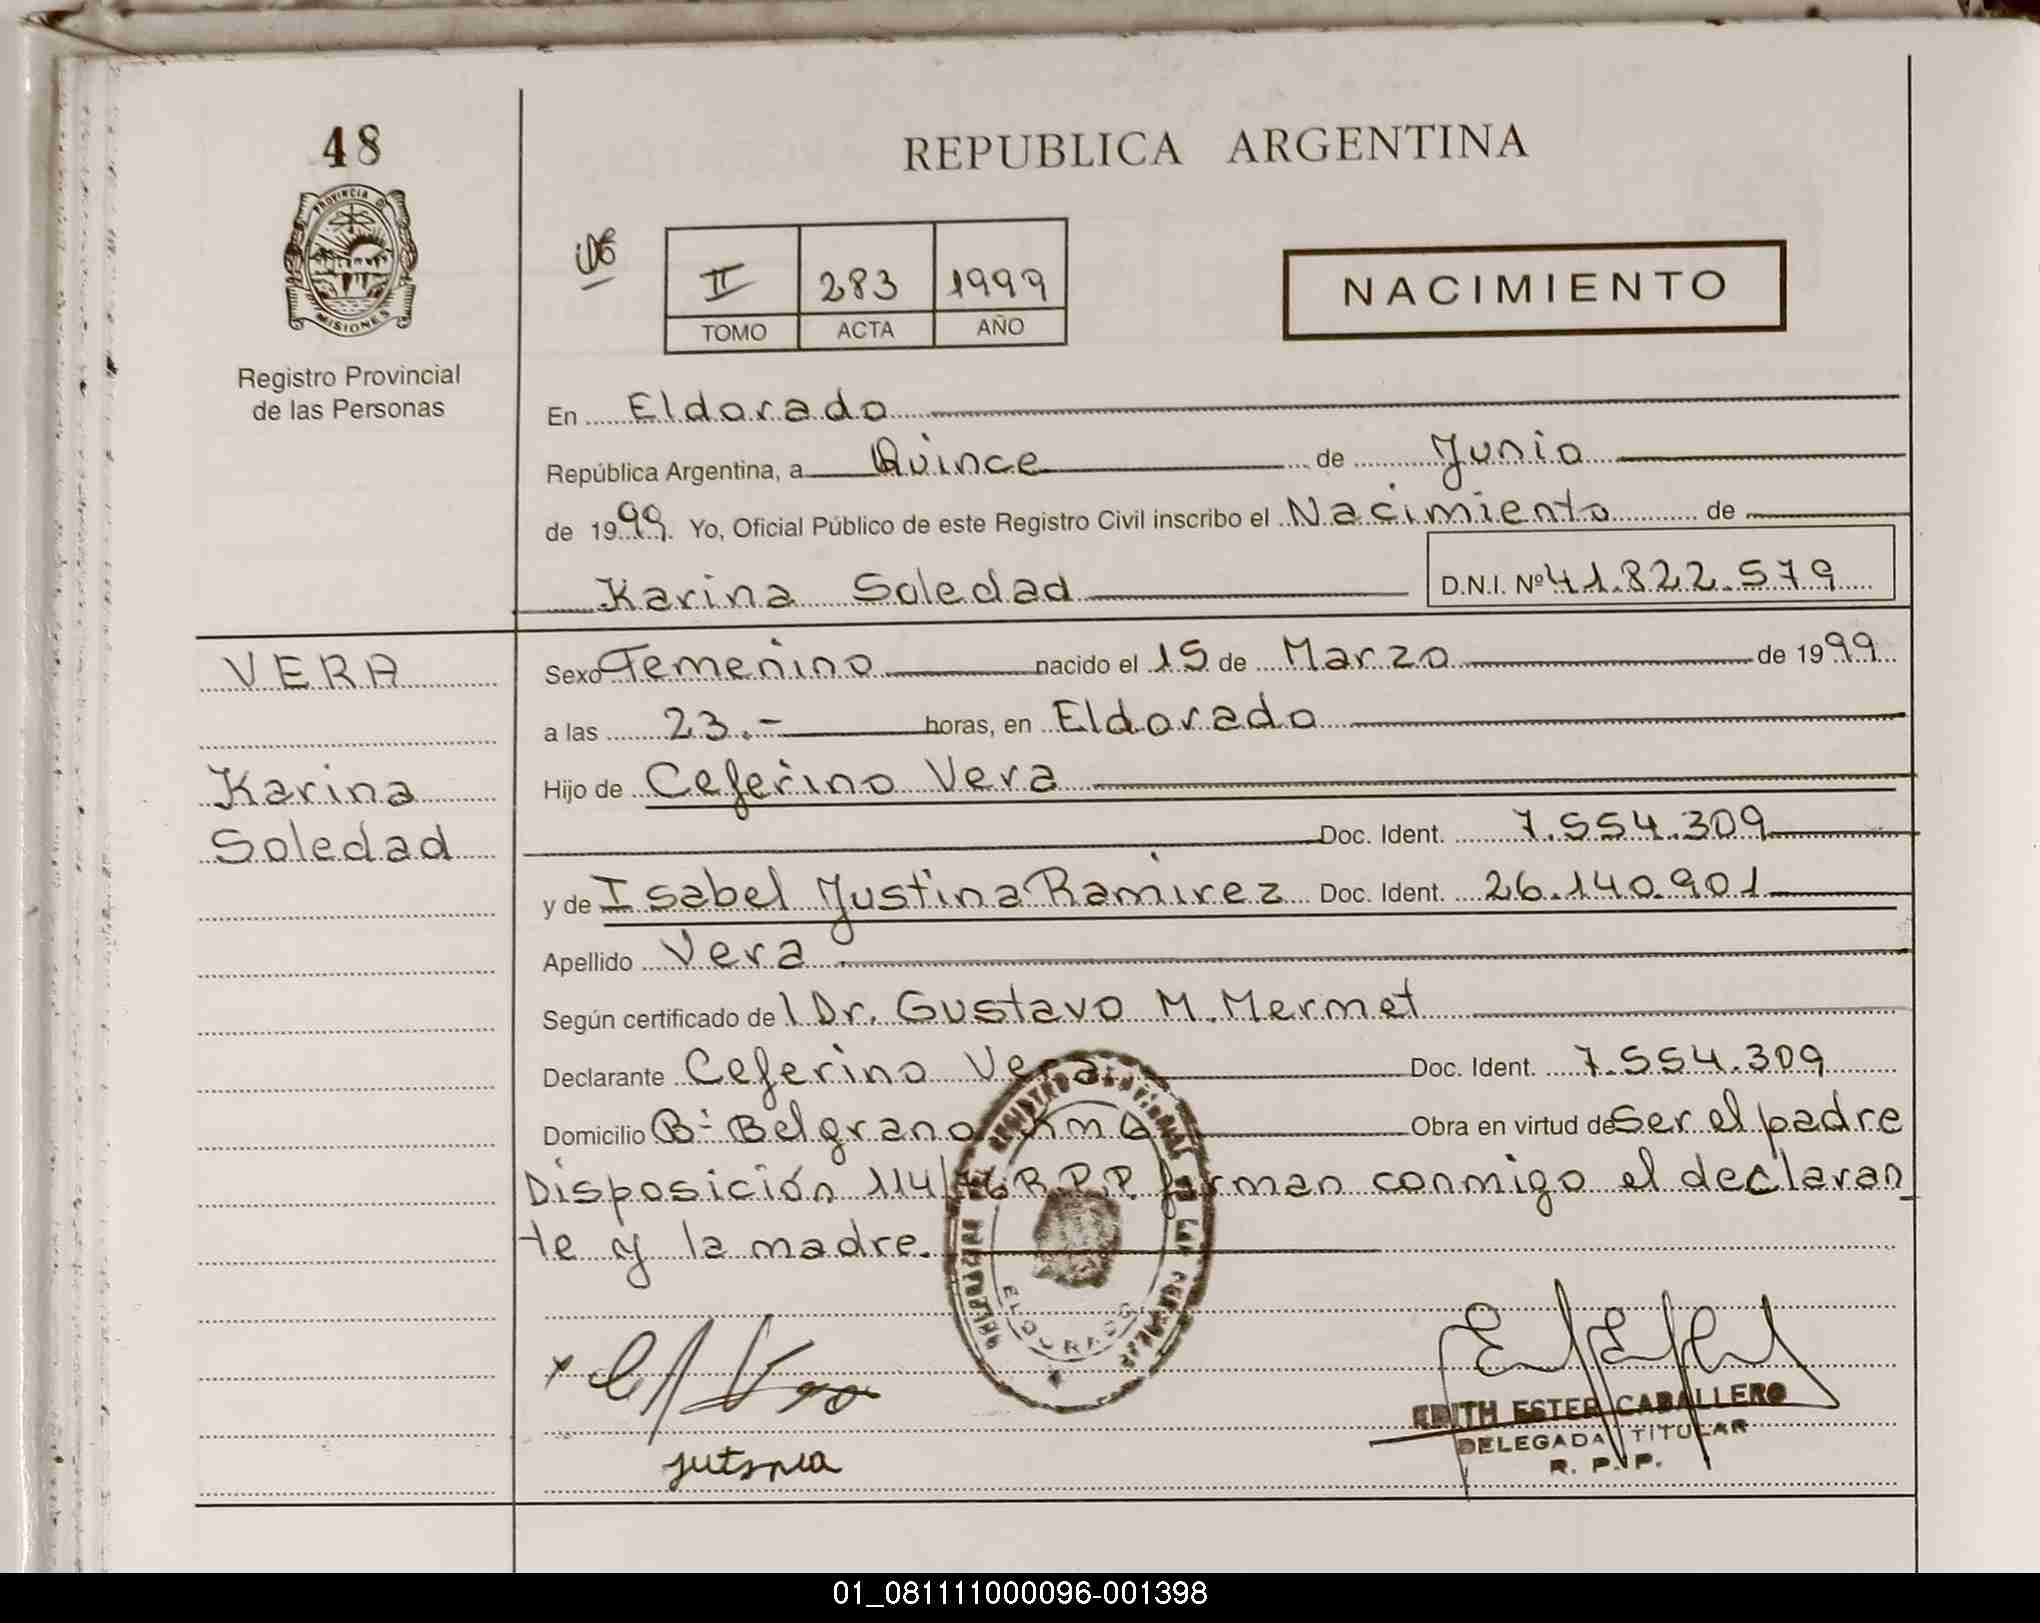 48
PROVINCIA D
MISIONES
Registro Provincial
de las Personas
REPUBLICA ARGENTINA
II 283 1999
TOMO ACTA AÑO
NACIMIENTO
En Eldorado
República Argentina, a Quince de Junio
de 1999. Yo, Oficial Público de este Registro Civil inscribo el Nacimiento de
Karina Soledad D.N.I. Nº 41.822.579
VERA
Karina
Soledad
Sexo Femenino nacido el 15 de Marzo de 1999
a las 23.- horas, en Eldorado
Hijo de Ceferino Vera
Doc. Ident. 7.554.309
y de Isabel Justina Ramirez Doc. Ident. 26.140.901
Apellido Vera
Según certificado del Dr. Gustavo M. Mermet
Declarante Ceferino Vera Doc. Ident. 7.554.309
Domicilio Bº Belgrano Km 9 Obra en virtud de Ser el padre
Disposición 114/76 R.P.P. firman conmigo el declaran
te y la madre.
ELDORADO
EDITH ESTER CABALLERO
DELEGADA TITULAR
R. P. P.
01_081111000096-001398